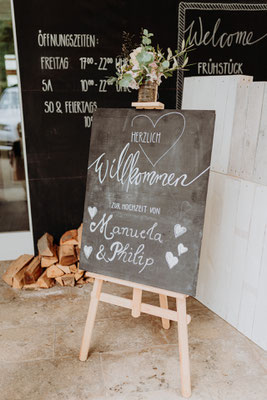 ÖFFNUNGSZEITEN:
FREITAG 17:00 - 22:00
SA 10:00 - 22
SO & FEIERTAGS
10
Welcome
FRÜHSTÜCK
HERZLICH
Willkommen
ZUR HOCHZEIT VON
Manuela
& Philip